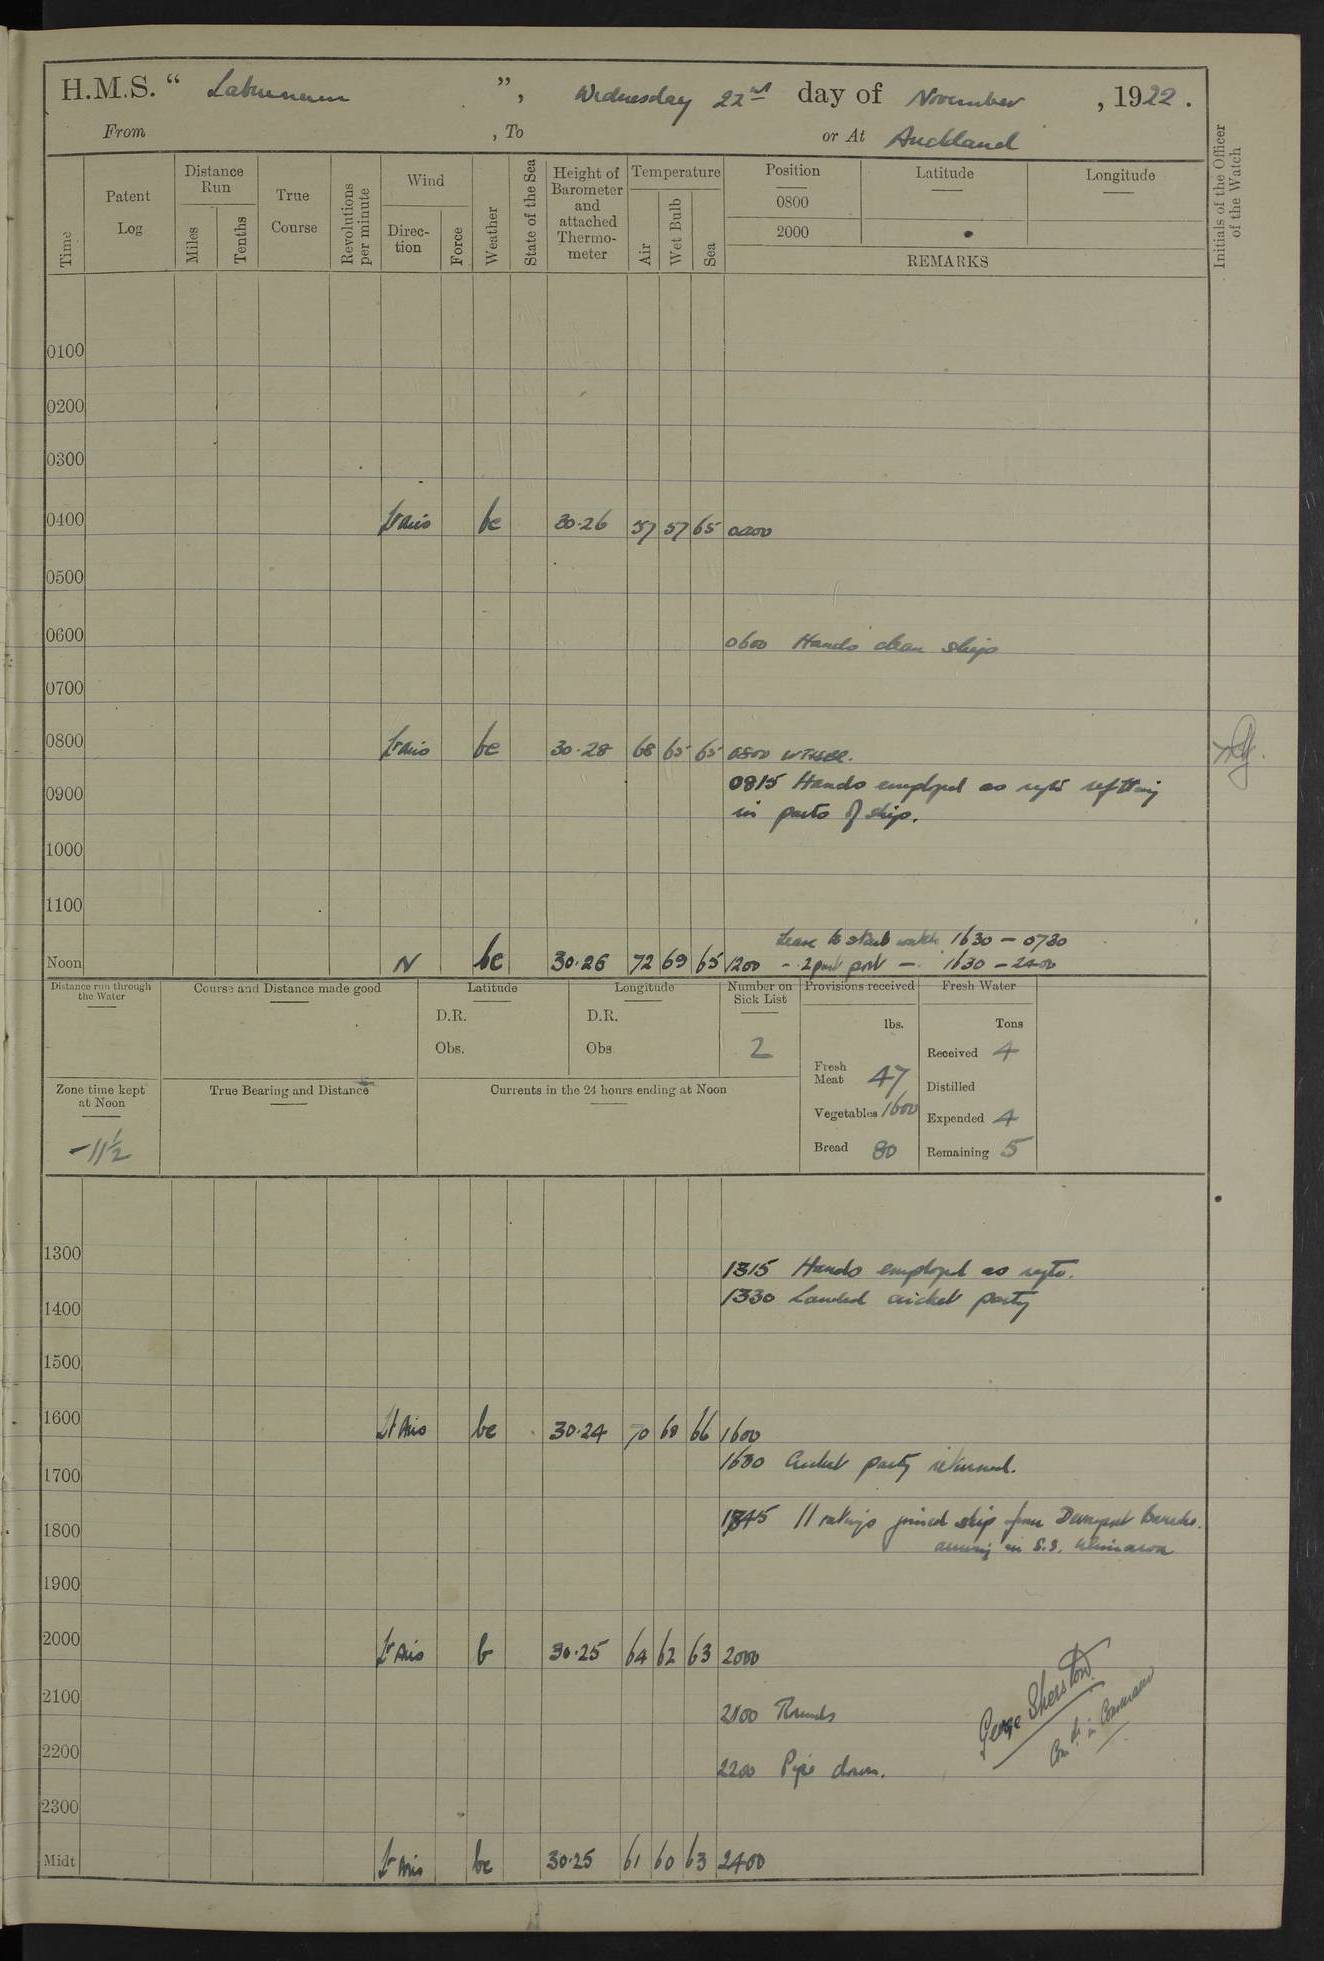 H.M.S. “ Laburnum ”, Wednesday 22nd day of November , 1922.
From , To or At Auckland
Time
Patent Log
Distance Run
Miles
Tenths
True Course
Revolutions per minute
Wind
Direction
Force
Weather
State of the Sea
Height of Barometer and attached Thermometer
Temperature
Air
Wet Bulb
Sea
Position
0800
2000
Latitude
Longitude
REMARKS
Initials of the Officer of the Watch
0100
0200
0300
0400 Lt Airs bc 30.26 57 57 65 0400
0500
0600 0600 Hands clean ship
0700
0800 Lt Airs bc 30.28 68 65 65 0800
0815 Hands employed as reqte refitting
0900 in parts of ship.
1000
1100
Leave to starb watch 1630 – 0730
Noon N bc 30.26 72 69 65 1200 - 2 part port - 1630 – 2400
Distance run through the Water
Course and Distance made good
Latitude
D.R.
Obs.
Longitude
D.R.
Obs
Number on Sick List
2
Provisions received
lbs.
Fresh Meat 47
Vegetables 1600
Bread 80
Fresh Water
Tons
Received 4
Distilled
Expended 4
Remaining 5
Zone time kept at Noon
-11½
True Bearing and Distance
Currents in the 24 hours ending at Noon
1300
1315 Hands employed as reqte.
1330 Landed cricket party
1400
1500
1600 Lt Airs bc 30.24 70 68 66 1600
Cricket party returned.
1700
11 ratings joined ship from Devonport Barracks.
1800
in S.S.
1900
2000 Lt Airs b 30.25 64 62 63 2000
2100 2100 Rounds
2200 2200 Pipe down.
George Sherston
Comdr in Command
2300
Midt Lt Airs bc 30.25 61 60 63 2400